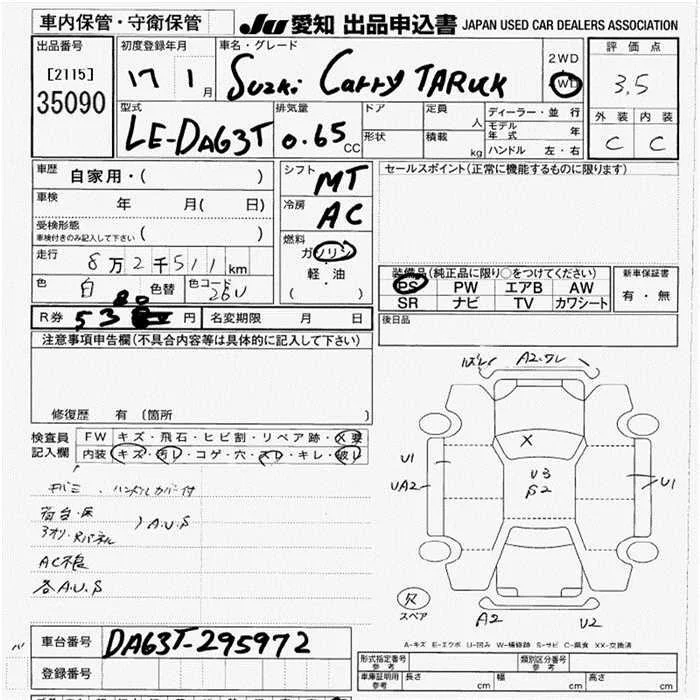 車内保管・守衛保管
JU 愛知 出品申込書 JAPAN USED CAR DEALERS ASSOCIATION
出品番号
[2115]
35090
初度登録年月
17 1月
車名・グレード
Suzki Carry TARUCK
2WD
4WD
評価点
3.5
外装 内装
C C
型式
LE-DA63T
排気量
0.65 CC
ドア
形状
定員
人
積載
kg
ディーラー・並行
モデル年式 年
ハンドル 左・右
車歴
自家用・( )
車検
年 月( 日)
受検形態
車検付きのみ記入して下さい ( )
走行
8万2千511km
色
白
色替
色コード
26U
シフト
MT
冷房
AC
燃料
ガソリン
・
軽・油
( )
セールスポイント(正常に機能するものに限ります)
装備品(純正品に限り○をつけてください)
PS PW エアB AW
SR ナビ TV カワシート
新車保証書
有・無
後日品
R券
円
名変期限 月 日
注意事項申告欄(不具合内容等は具体的に記入して下さい)
修復歴 有〔箇所 〕
検査員
記入欄
FW キズ・飛石・ヒビ割・リペア跡・X要
内装 キズ・汚レ・コゲ・穴・スレ・キレ・破レ
ハンドルカバー付
荷台・床
A.U.S
AC不良
各A.U.S
A2.ワレ
X
U3
S2
U1
UA2
U1
A2
U2
スペア
A-キズ E-エクボ U-凹み W-補修跡 S-サビ C-腐食 XX-交換済
車台番号
DA63T-295972
登録番号
形式指定番号
参考
類別区分番号
参考
車庫証明用
参考
長さ cm
幅 cm
高さ cm